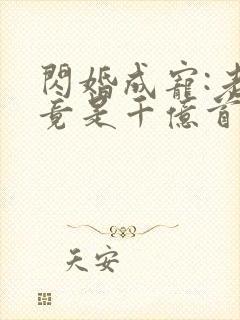 閃婚成寵:老
竟是千億首
天安